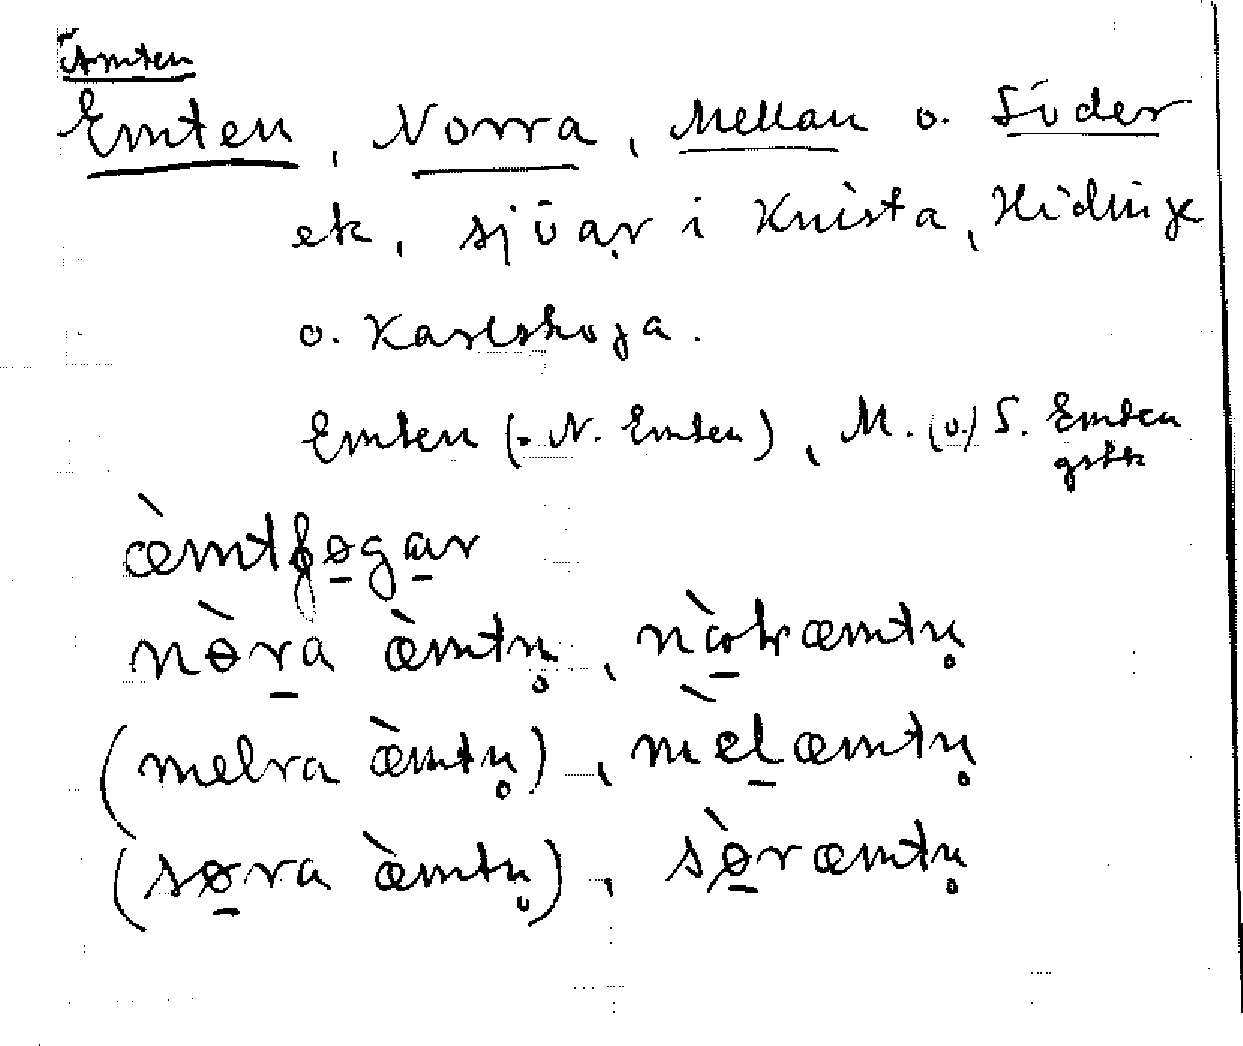 Ämten
Emten, Norra, Mellan o. Söder
ek, sjöar i Knista, Hidinge
o. Karlskoga.
Emten (= N. Emten), M. (o.) S. Emten
gstk
æ̀mtʃøgar
nø̀ra æ̀mtn̥, nòɷræmtn̥
(melra æ̀mtn̥), mèlæmtn̥
(søra æ̀mtn̥), sø̀ræmtn̥